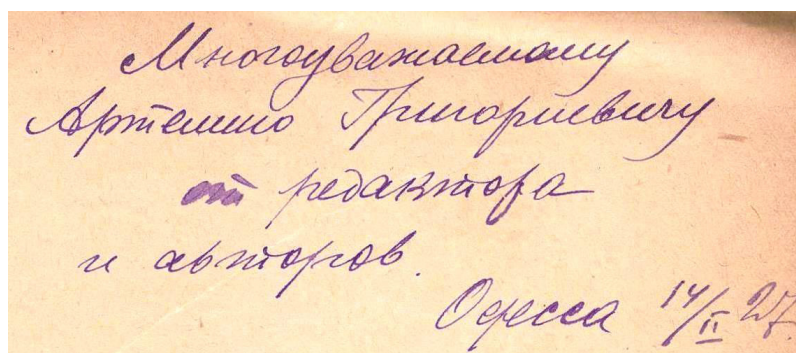 Многоуважаемому
Артемию Григориевичу
от редактора
и авторов.
Одесса 14/II 27.